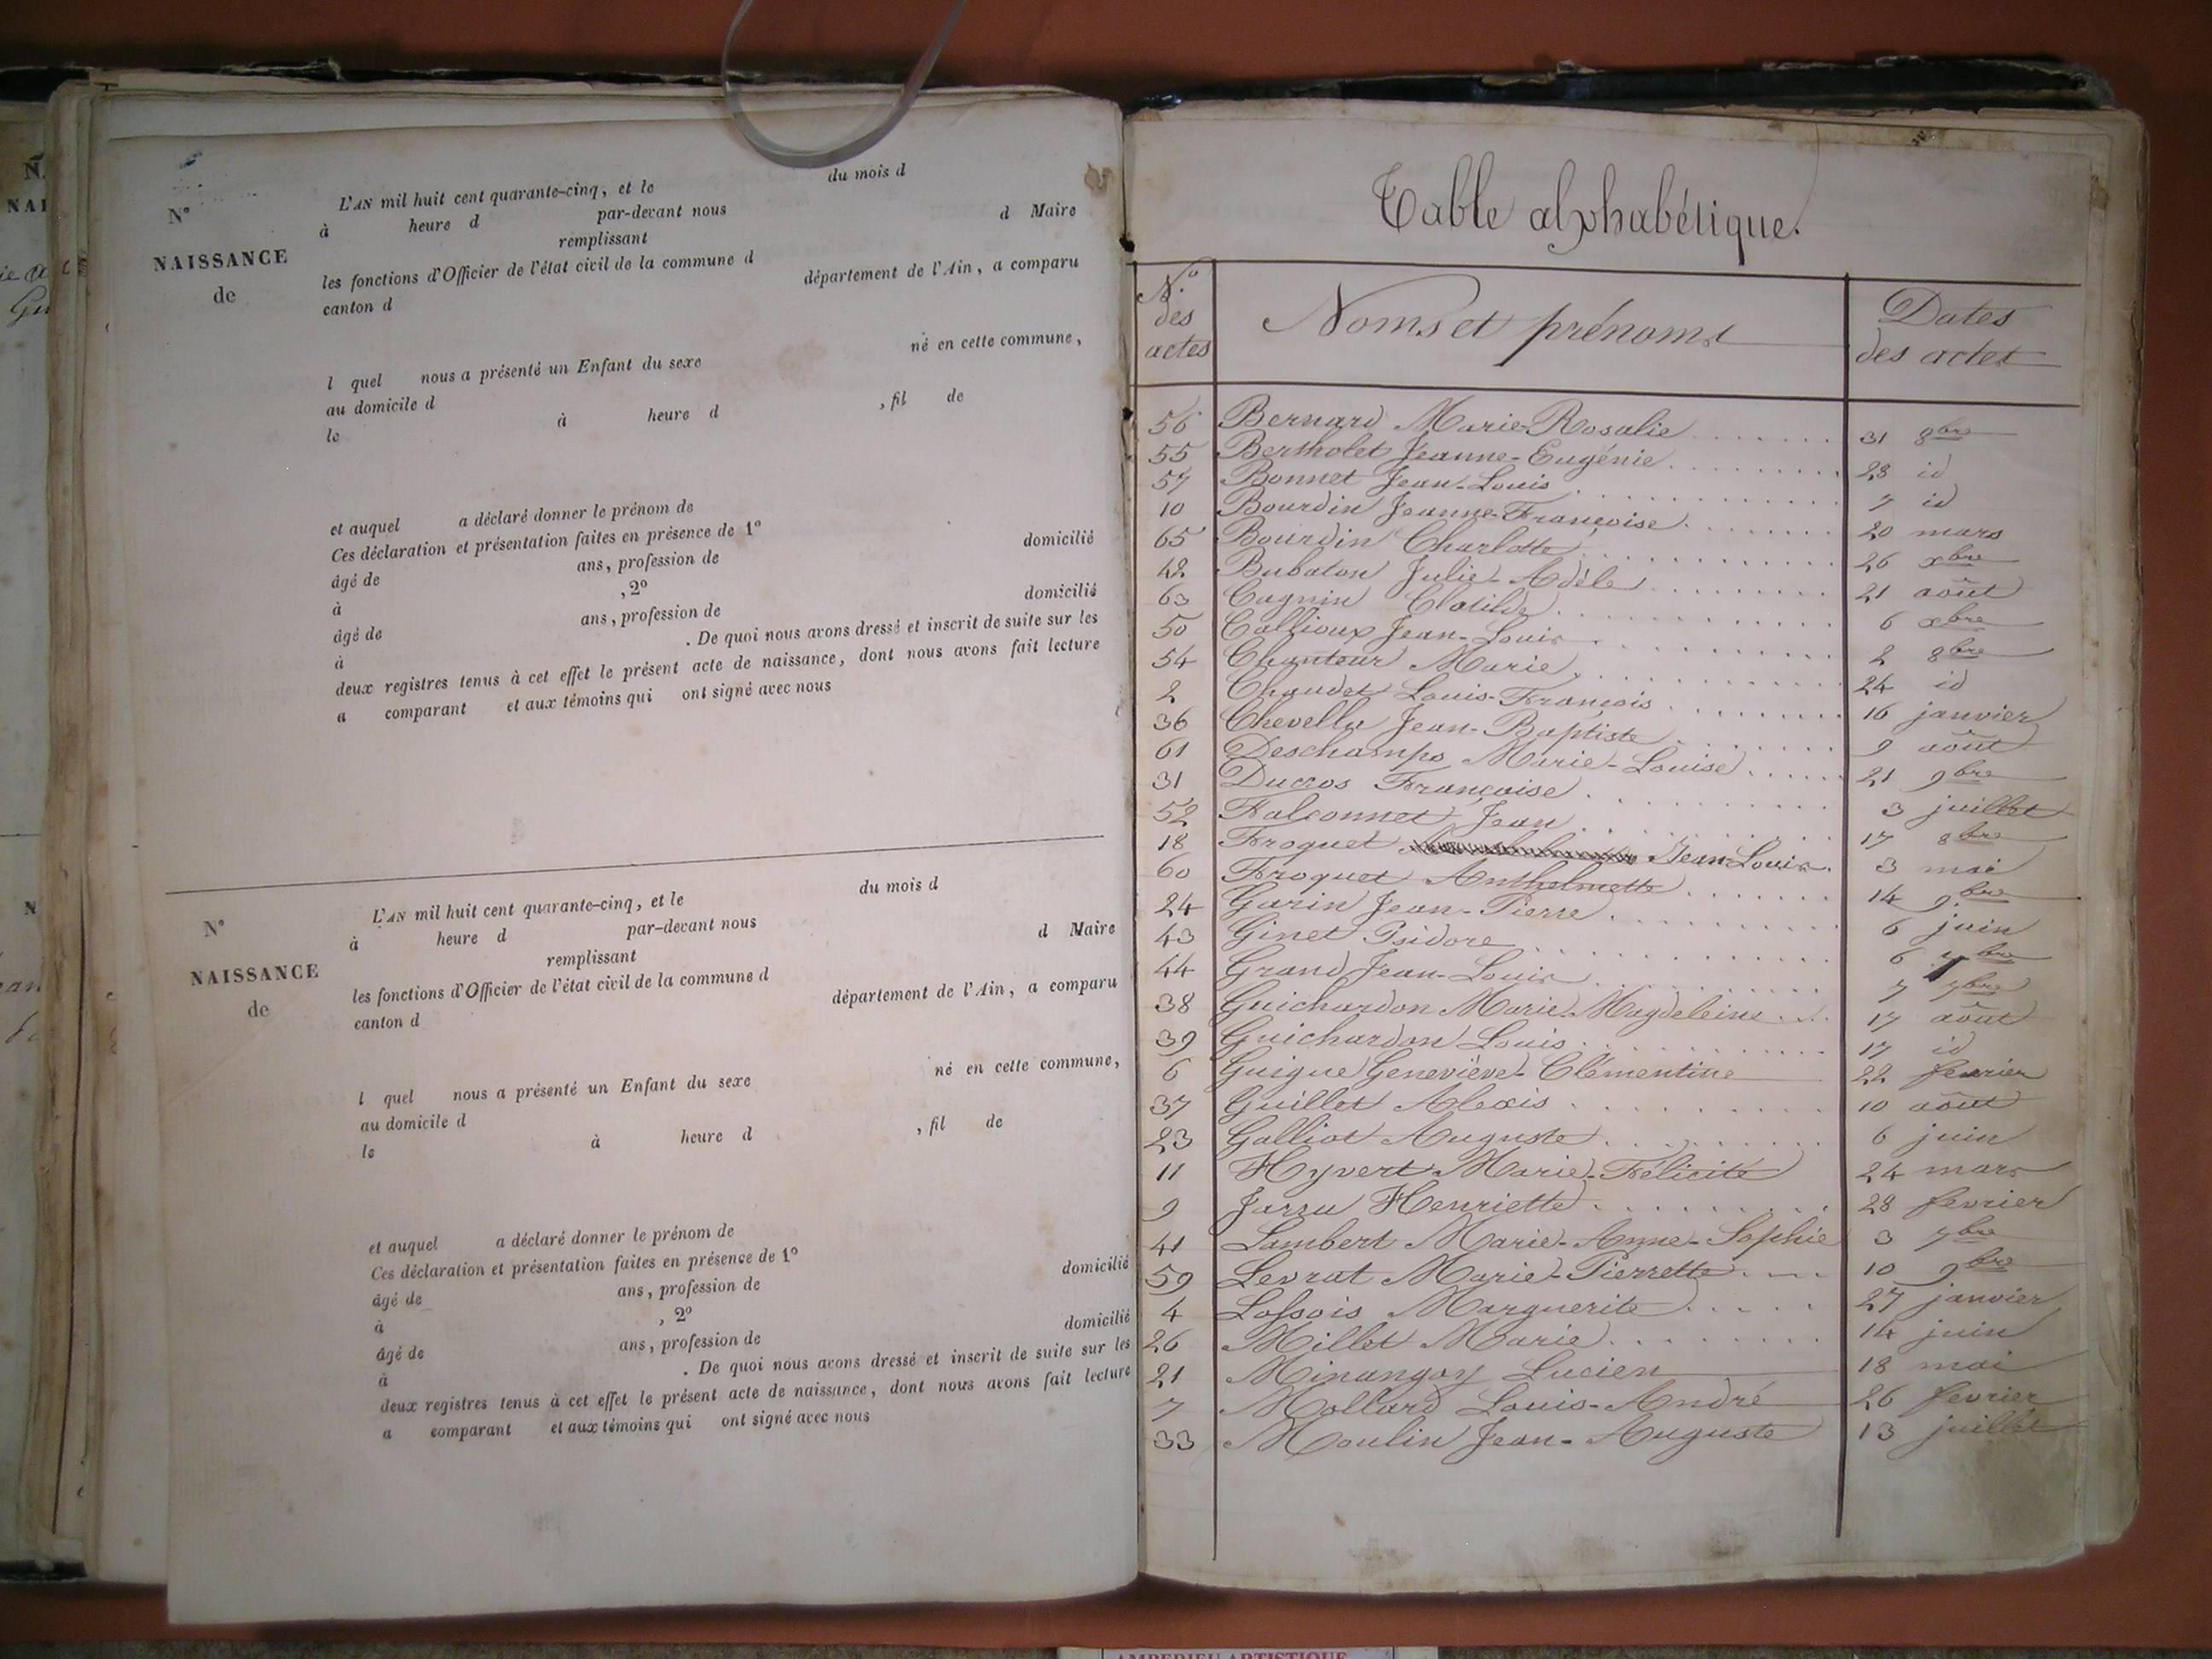 N°
NAISSANCE
de
L'AN mil huit cent quarante-cinq, et le du mois d
à heure d par-devant nous
remplissant d Maire
les fonctions d'Officier de l'état civil de la commune d
canton d département de l'Ain, a comparu
né en cette commune,
l quel nous a présenté un Enfant du sexe
au domicile d
le à heure d , fil de
et auquel a déclaré donner le prénom de
Ces déclaration et présentation faites en présence de 1°
âgé de ans, profession de domicilié
à , 2°
âgé de ans, profession de domicilié
à . De quoi nous avons dressé et inscrit de suite sur les
deux registres tenus à cet effet le présent acte de naissance, dont nous avons fait lecture
a comparant et aux témoins qui ont signé avec nous
N°
NAISSANCE
de
L'AN mil huit cent quarante-cinq, et le du mois d
à heure d par-devant nous
remplissant d Maire
les fonctions d'Officier de l'état civil de la commune d
canton d département de l'Ain, a comparu
né en cette commune,
l quel nous a présenté un Enfant du sexe
au domicile d
le à heure d , fil de
et auquel a déclaré donner le prénom de
Ces déclaration et présentation faites en présence de 1°
âgé de ans, profession de domicilié
à , 2°
âgé de ans, profession de domicilié
à . De quoi nous avons dressé et inscrit de suite sur les
deux registres tenus à cet effet le présent acte de naissance, dont nous avons fait lecture
a comparant et aux témoins qui ont signé avec nous
Table alphabétique.
N.° des actes Noms et prénoms Dates des actes
56 Bernard Marie-Rosalie 31 8bre
55 Bertholet Jeanne-Eugénie 28 id
57 Bonnet Jean-Louis 7 id
10 Bourdin Jeanne-Françoise 20 mars
65 Bourdin Charlotte 26 xbre
42 Bubaton Julie-Adèle 21 août
63 Cagnin Clotilde 6 xbre
50 Callioux Jean-Louis 2 8bre
54 Chanteur Marie 24 id
2 Chaudet Louis-François 16 janvier
36 Chevellu Jean-Baptiste 9 août
61 Deschamps Marie-Louise 21 9bre
31 Ducros Françoise 3 juillet
52 Falconnet Jean 17 8bre
18 Froquet Jean-Louis 3 mai
60 Froquet Anthelmette 14 9bre
24 Garin Jean-Pierre 6 juin
43 Ginet Isidore 6 7bre
44 Grand Jean-Louis 7 7bre
38 Guichardon Marie-Magdeleine 17 août
39 Guichardon Louis 17 id
6 Guigue Geneviève-Clémentine 22 fevrier
37 Guillet Alexis 10 août
23 Galliot Auguste 6 juin
11 Hyvert Marie-Félicité 24 mars
9 Henriette 28 fevrier
41 Lambert Marie-Anne-Sophie 3 7bre
59 Levrat Marie-Pierrette 10 9bre
4 Marguerite 27 janvier
26 Millet Marie 14 juin
21 Minangoy Lucien 18 mai
7 Mollard Louis-André 26 fevrier
33 Moulin Jean-Auguste 13 juillet
AMBERIEU ARTISTIQUE